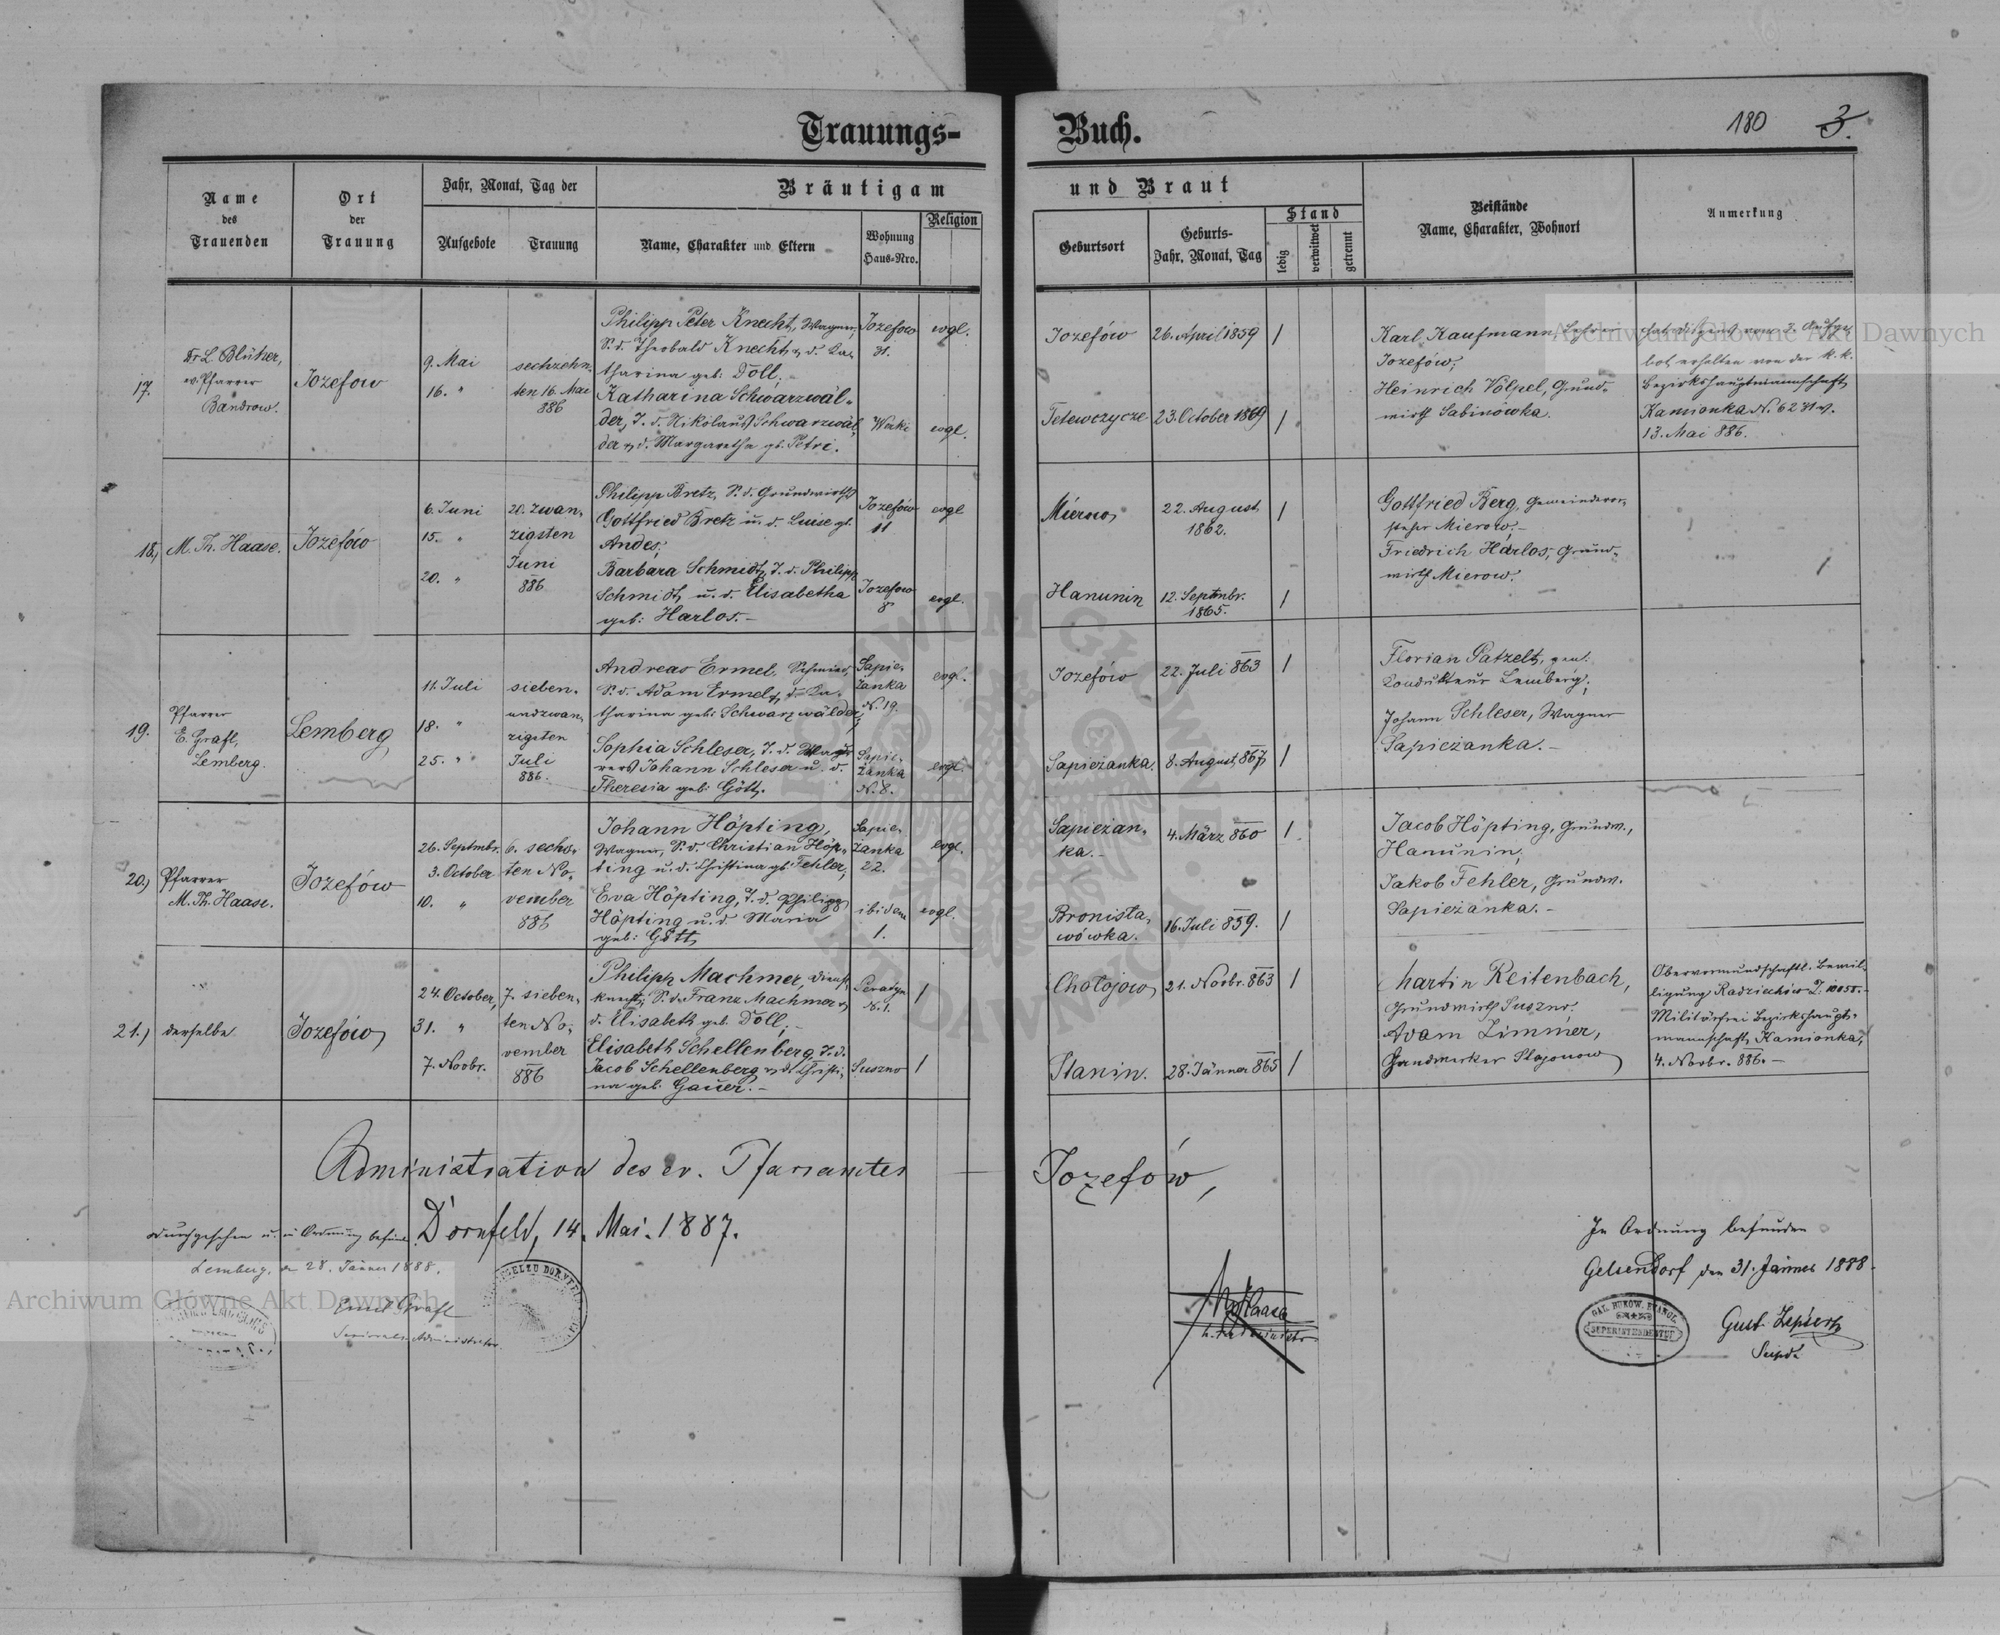 Trauungs-
Buch.
180 3.
Name
des
Trauenden
Ort
der
Trauung
Jahr, Monat, Tag der
Aufgebote
Trauung
Bräutigam
und Braut
Name, Charakter und Eltern
Wohnung
Haus-Nro.
Religion
Geburtsort
Geburts-
Jahr, Monat, Tag
Stand
ledig
verwitwet
getrennt
Beistände
Name, Charakter, Wohnort
Anmerkung
17.
Dr L. Blüher,
ev. Pfarrer
Bandrow.
Jozefow
9. Mai
16. "
sechzehn-
ten 16. Mai
886
Philipp Peter Knecht, Wagner,
S. d. Theobald Knecht u. d. Ka-
tharina geb: Doll;
Katharina Schwarzwäl-
der, T. d. Nikolaus Schwarzwäl-
der u. d. Margaretha gb. Petri.
Jozefow
31.
Wolki
evgl.
evgl.
Jozefów
26. April 1859
1
Tetewczyce
23. October 1869
1
Karl Kaufmann, Lehrer
Jozefów;
Heinrich Völpel, Grund-
wirth Sabinówka.
hat Dispens vom 3. Aufge-
bot erhalten von der k. k.
Bezirkshauptmannschaft
Kamionka N. 6271 v.
13. Mai 886.
18.)
M. Th. Haase.
Jozefów
6. Juni
15. "
20. "
20. zwan-
zigsten
Juni
886
Philipp Bretz, S. d. Grundwirths
Gottfried Bretz u. d. Luise gb.
Andes;
Barbara Schmidt, T. d. Philipp
Schmidt u. d. Elisabetha
geb: Harlos.-
Jozefów
11
Jozefow
8
evgl
evgl.
Mierow
22. August
1862.
1
Hanunin
12. Septmbr.
1865.
1
Gottfried Berg, Gemeindevor-
steher Mierow;-
Friedrich Harlos, Grund-
wirth Mierow.
19.
Pfarrer
E. Grafl,
Lemberg.
Lemberg
11. Juli
18. "
25. "
sieben-
undzwan-
zigsten
Juli
886.
Andreas Ermel, Schmied,
S. d. Adam Ermel u. d. Ka-
tharina geb: Schwarzwälder;
Sophia Schleser, T. d. Wag-
ners Johann Schleser u. d.
Theresia geb: Gött.
Sapie-
żanka
N. 19.
Sapie-
żanka
N. 8.
evgl.
evgl.
Jozefów
22. Juli 863
1
Sapieżanka.
8. August 867
1
Florian Patzelt, pens.
Kondukteur Lemberg;
Johann Schleser, Wagner
Sapieżanka.-
20.)
Pfarrer
M. Th. Haase.
Jozefów
26. Septmbr.
3. October
10. "
6. sechs-
ten No-
vember
886
Johann Höpting,
Wagner, S. d. Christian Höp-
ting u. d. Christina gb. Fehler,
Eva Höpting, T. d. Philipp
Höpting u. d. Maria
geb: Gött
Sapie-
żanka
22.
ibidem
1.
evgl.
evgl.
Sapieżan-
ka.-
4. März 860
1
Bronisła-
wówka.
16. Juli 859.
1
Jacob Höpting, Grundw.,
Hanunin;
Jakob Fehler, Grundw.
Sapieżanka.-
21.)
derselbe
Jozefów
24. October,
31. "
7. Novbr.
7. sieben-
ten No-
vember
886
Philipp Machmer, Dienst-
knecht, S. d. Franz Machmer u.
d. Elisabeth geb. Doll;-
Elisabeth Schellenberg, T. d.
Jacob Schellenberg u. d. Christi-
na geb. Gauer.-
N. 1.
Suszno
1
1
Chołojow
21. Novbr. 863
1
Stanin.
28. Jänner 865
1
Martin Reitenbach,
Grundwirth Suszno.
Adam Zimmer,
Handwerker Stojanow
Obervormundschaftl. Bewil-
ligung Radziechów Z. 10050.-
Militärfrei Bezirkshaupt-
mannschaft Kamionka,
4. Novbr. 886.-
Administration des ev. Pfarramtes
Jozefów,
Dornfeld, 14. Mai. 1887.
durchgesehen u. in Ordnung befund.
Lemberg, den 28. Jänner 1888.
Emil Grafl
Seniorats-Administrator
MThHaase
In Ordnung befunden
Gelsendorf, den 31. Jänner 1888.
GAL. BUKOW. EVANGL.
SUPERINTENDENTUR
Gust. Zipser
Supdt.
Archiwum Główne Akt Dawnych
Archiwum Główne Akt Dawnych